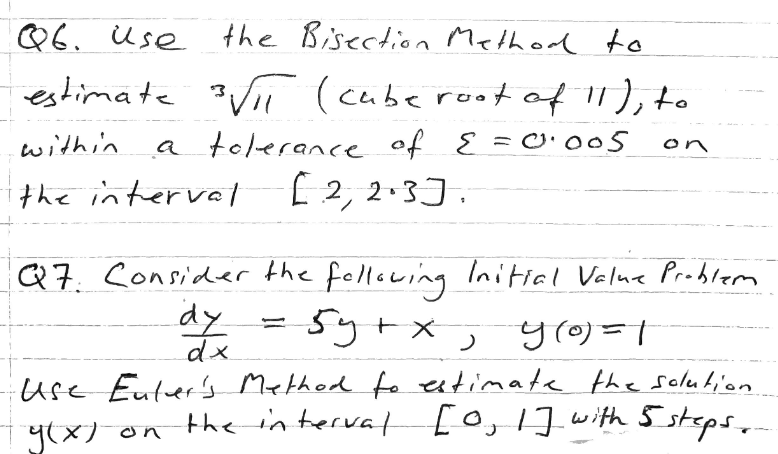 Q6. Use the Bisection Method to
estimate ³√11 (cube root of 11), to
within a tolerance of ε = 0.005 on
the interval [2, 2.3].
Q7. Consider the following Initial Value Problem
dy/dx = 5y + x, y(0) = 1
Use Euler's Method to estimate the solution
y(x) on the interval [0, 1] with 5 steps.